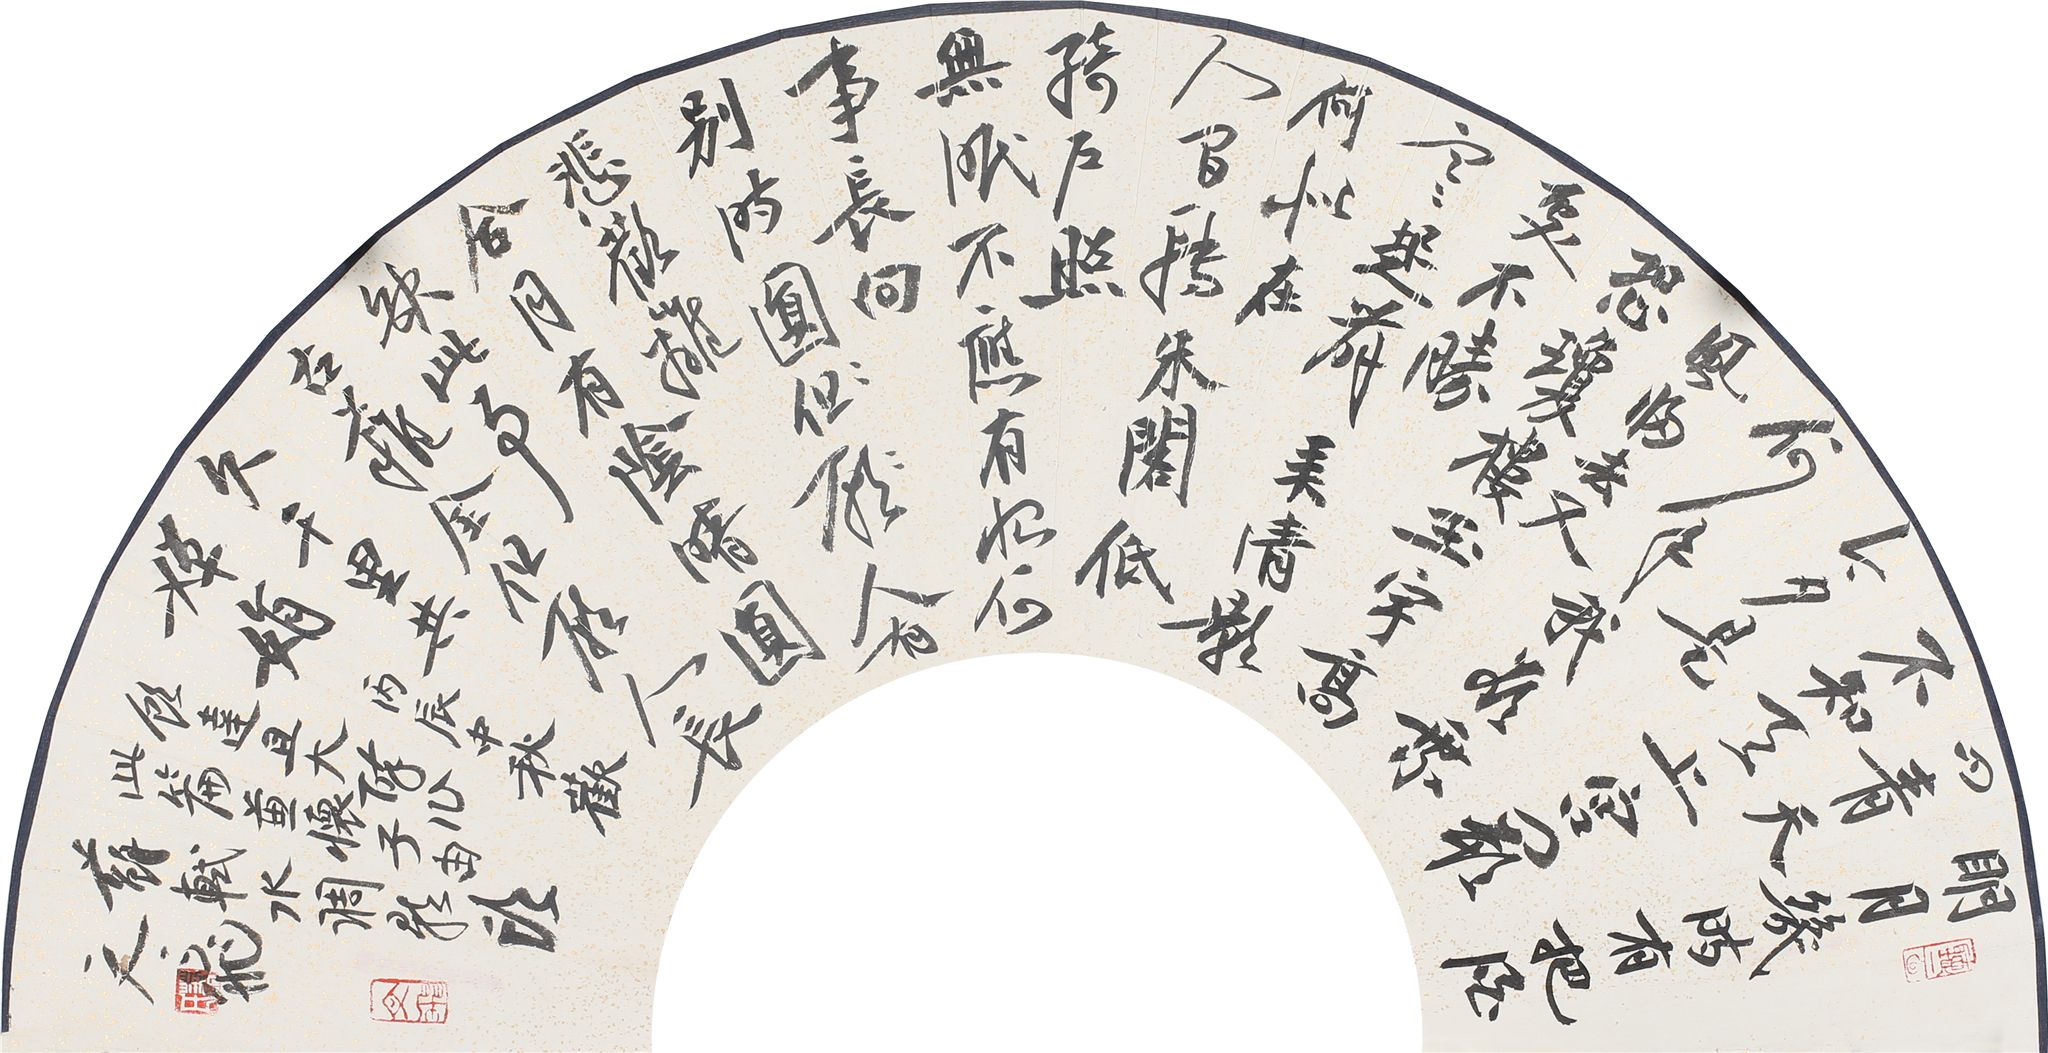 明月幾時有把酒
問青天
不知天上宮闕
今夕是
何年我欲乘
風歸去又
恐瓊樓玉宇高
處不勝
寒起舞弄清影
何似在
人間轉朱閣低
綺戶照
無眠不應有恨何
事長向
別時圓但願人有
悲歡離
合月有陰晴圓
缺此事
古難全但願人長
久千里共
嬋娟丙辰中秋歡
飲達旦大醉作
此篇兼懷子由
蘇軾水調歌頭
天龍